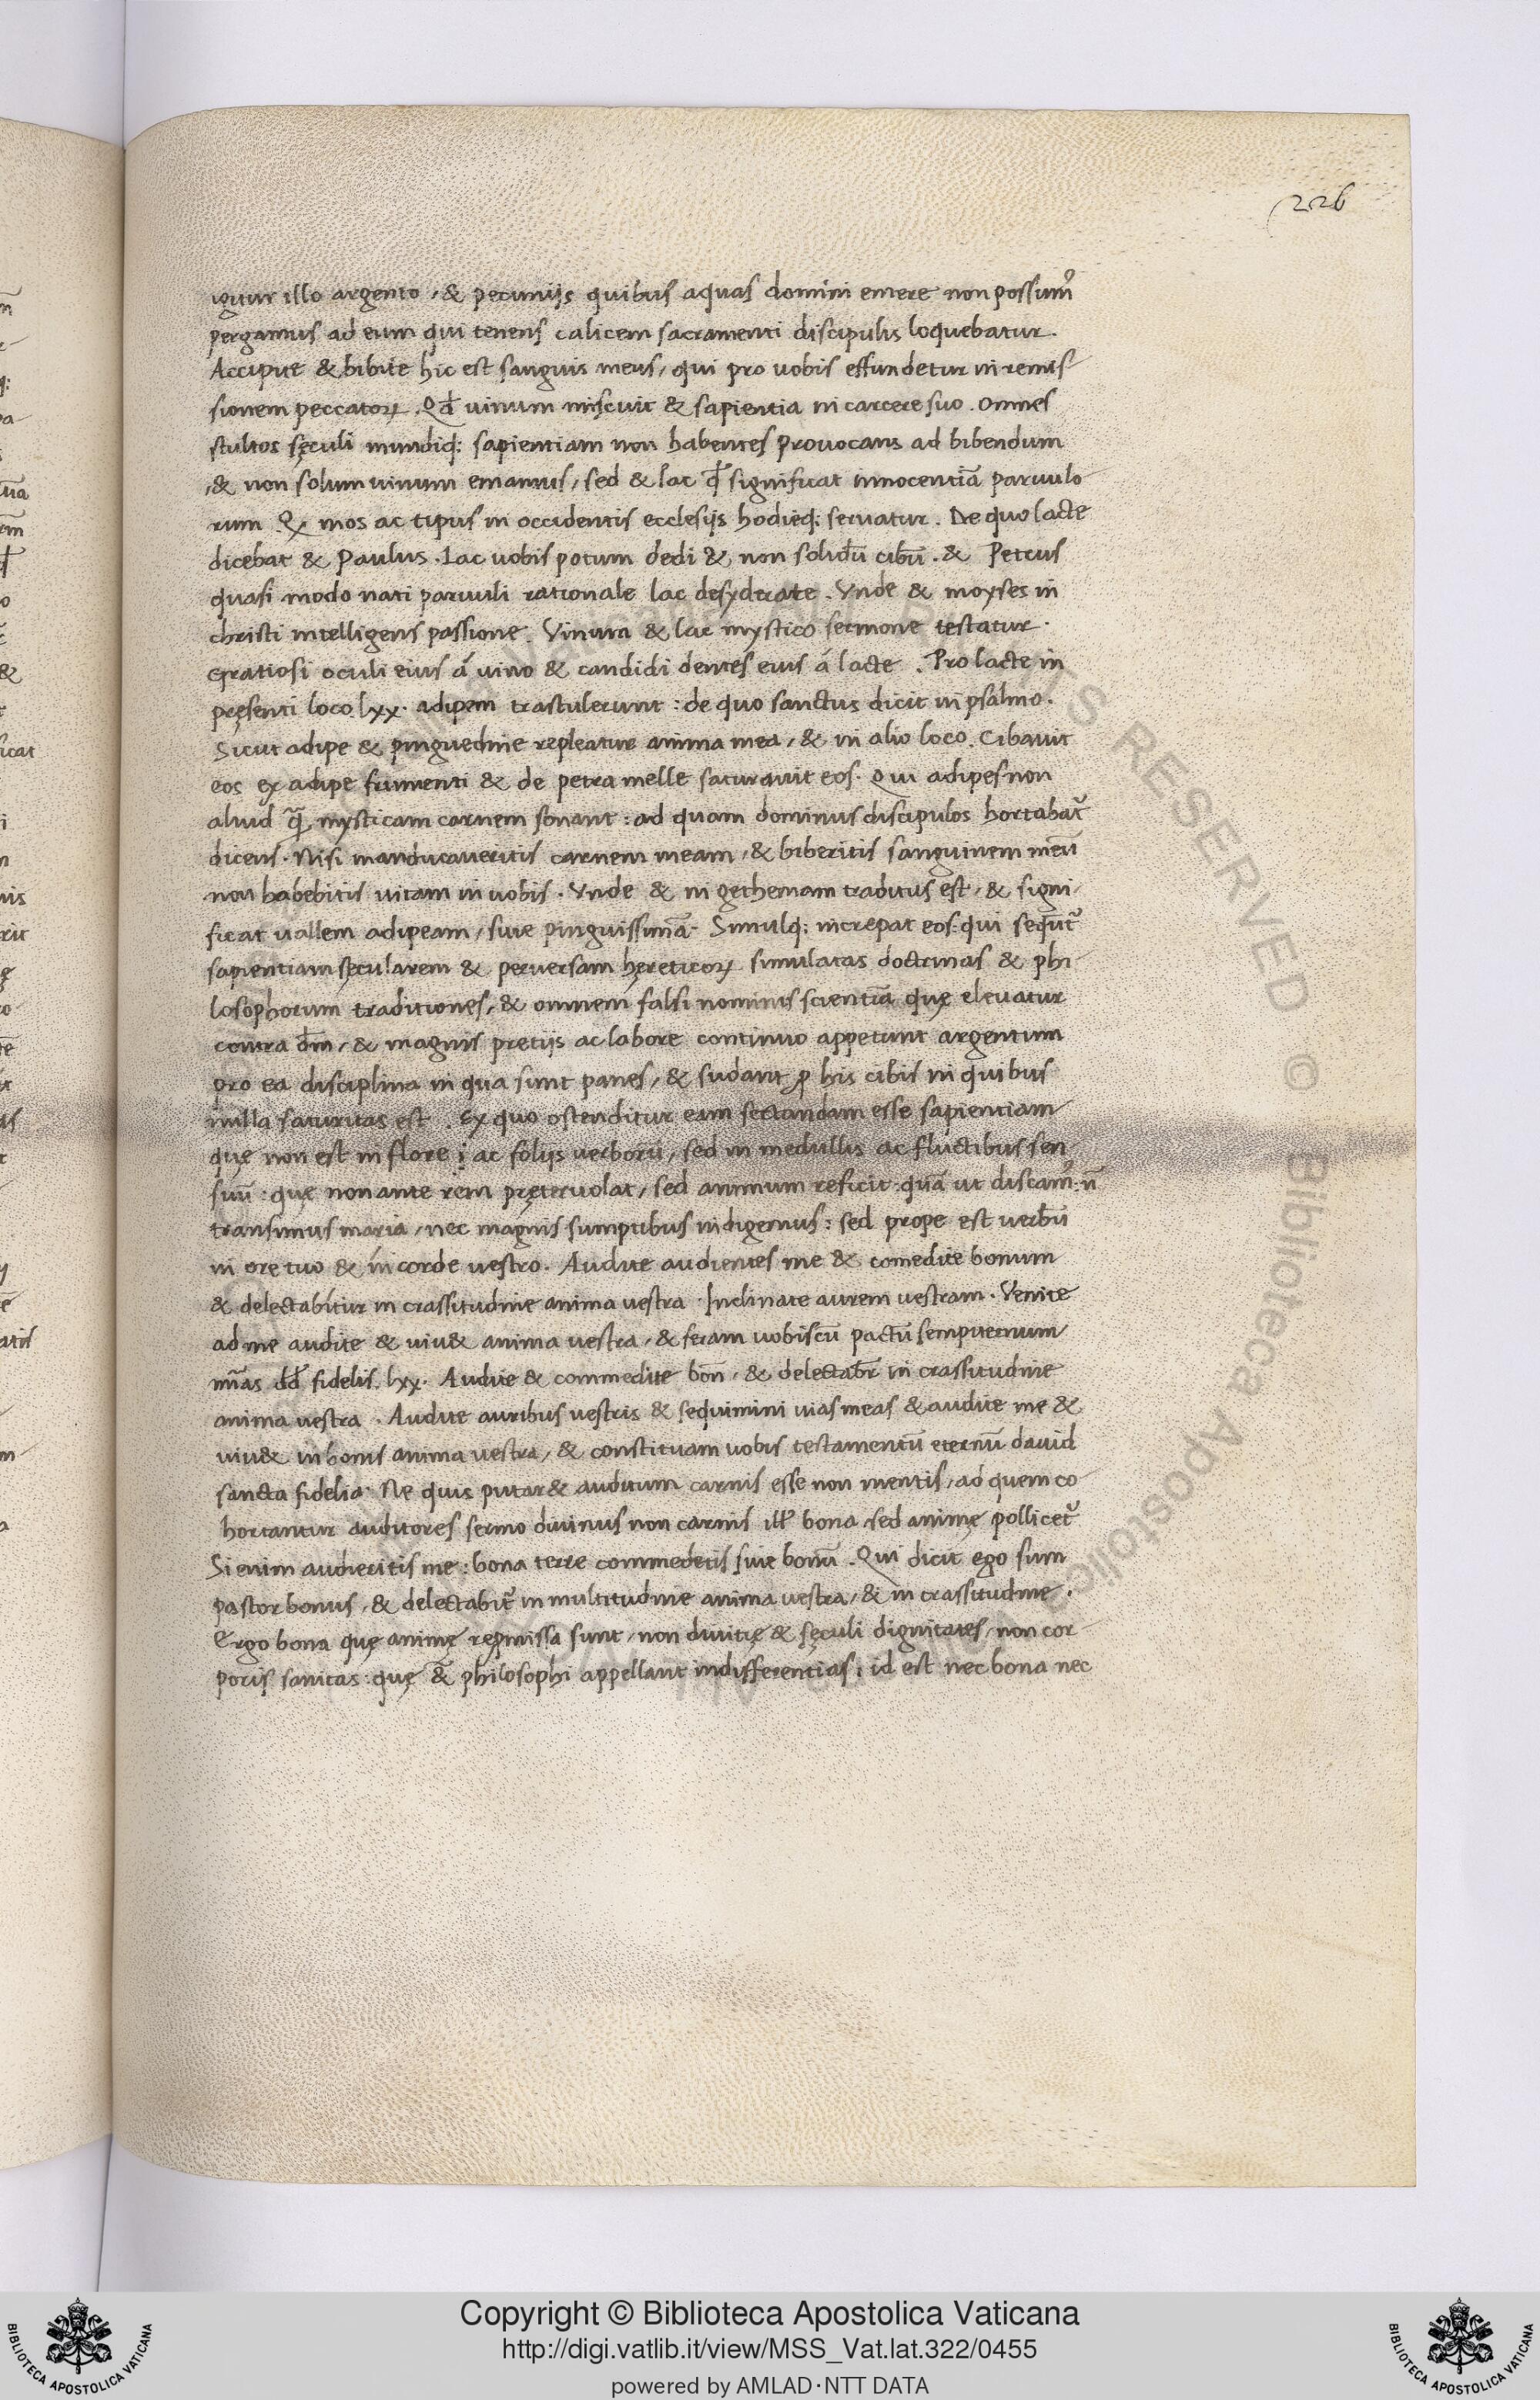 226
igitur illo argento, & pecunijs quibus aquas domini emere non possum᷒
pergamus ad eum qui tenens calicem sacramenti discipulis loquebatur.
Accipite & bibite hic est sanguis meus, qui pro uobis effundetur in remis
sionem peccatoꝝ. Qđ uinum miscuit & sapientia in carcere suo. omnes
stultos sęculi mundiq; sapientiam non habentes prouocans ad bibendum
& non solum uinum emamus, sed & lac qđ significat innocentiā paruulo
rum. mos ac tipus in occidentis ecclesijs hodieq; seruatur. De quo lacte
dicebat & Paulus. Lac uobis potum dedi & non solidū cibū. & Petrus
quasi modo nati paruuli rationale lac desyderate. Vnde & moyses in
christi intelligens passione. Vinum & lac mystico sermone testatur.
Gratiosi oculi eius á uino & candidi dentes eius á lacte. Pro lacte in
pręsenti loco lxx. adipem trastulerunt: de quo sanctus dicit in psalmo.
Sicut adipe & pinguedine repleatur anima mea, & in alio loco. Cibauit
eos ex adipe frumenti & de petra melle saturauit eos. Qui adipes non
aliud mysticam carnem sonant: ad quam dominus discipulos hortabat᷑
dicens. Nisi manducaueritis carnem meam, & biberitis sanguinem meū
non habebitis uitam in uobis. Vnde & in gethemam traditus est, & signi
ficat uallem adipeam, siue pinguissimā. Simulq; increpat eos: qui sequt᷑
sapientiam sęcularem & peruersam hęreticoꝝ simulatas doctrinas & phi
losophorum traditiones, & omnem falsi nominis scientiā quę eleuatur
contra dm̄, & magnis pretijs ac labore continuo appetunt argentum
pro ea disciplina in qua sunt panes, & sudant ꝓ his cibis in quibus
nulla saturitas est. Ex quo ostenditur eam sectandam esse sapientiam
quę non est in flore ; ac folijs uerborū, sed in medullis ac fluctibus sen
suū: quę non ante rem pręteruolat, sed animum reficit: quā ut discam᷒: n̄
transimus maria, nec magnis sumptibus indigemus: sed prope est uerbū
in ore tuo & in corde uestro. Audite audientes me & comedite bonum
& delectabitur in crassitudine anima uestra. Inclinate aurem uestram. Venite
ad me audite & uiu& anima uestra, & feram uobiscū pactū sempiternum
mīas dđ fidelis. lxx. Audite & commedite bon̄, & delectabr̄ in crassitudine
anima uestra. Audite auribus uestris & sequimini uias meas & audite me &
uiu& in bonis anima uestra, & constituam uobis testamentū eternū dauid
sancta fidelia. Ne quis putar& auditum carnis esse non mentis, ad quem co
hortantur auditores sermo diuinus non carnis ill' bona sed animę pollicet᷑
Si enim audieritis me: bona terre commedetis siue bonū. Qui dicit ego sum
pastor bonus, & delectabit᷑ in multitudine anima uestra, & in crassitudine.
Ergo bona quę animę repmissa sunt, non diuitię & sęculi dignitates, non cor
poris sanitas: quę & philosophi appellant indifferentias: id est nec bona nec
Copyright © Biblioteca Apostolica Vaticana
http://digi.vatlib.it/view/MSS_Vat.lat.322/0455
powered by AMLAD·NTT DATA
BIBLIOTECA APOSTOLICA VATICANA
BIBLIOTECA APOSTOLICA VATICANA